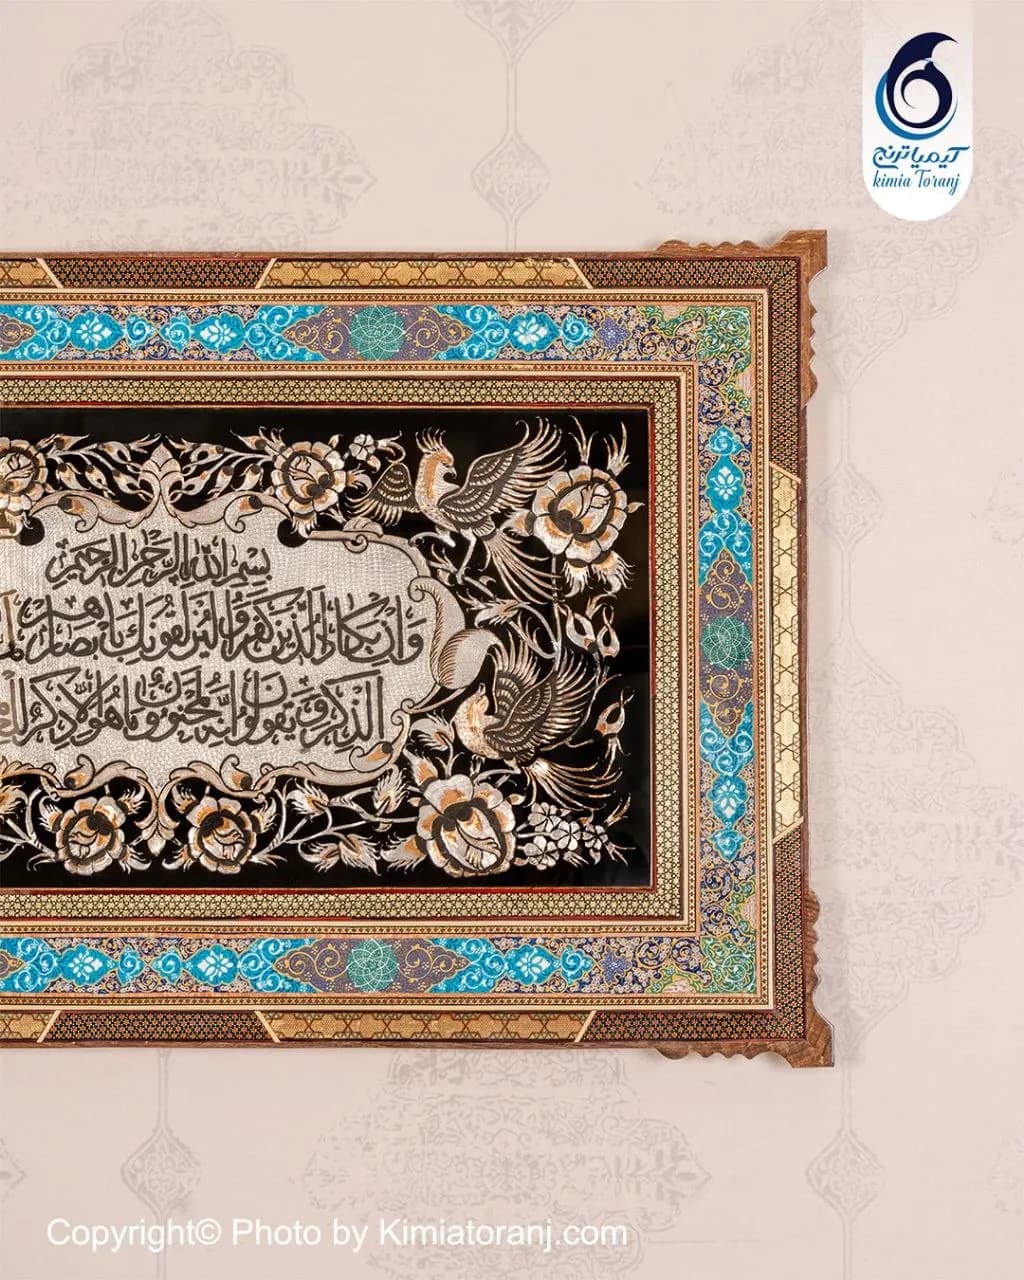 کیمیا ترنج
kimia Toranj
بسم الله الرحمن الرحيم
وإن يكاد الذين كفروا ليزلقونك بأبصارهم
الذكر ويقولون إنه لمجنون وما هو إلا ذكر
Copyright© Photo by Kimiatoranj.com